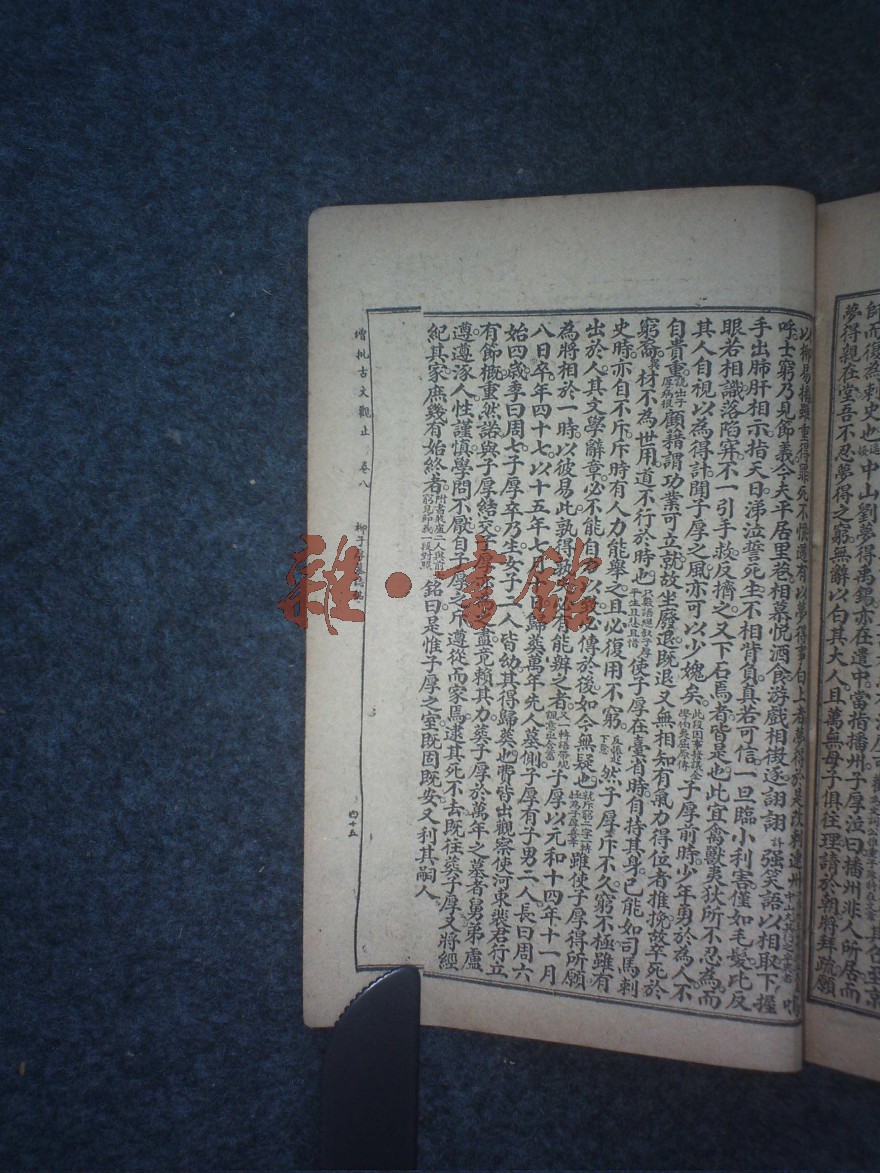 師而復為刺史也
中山劉夢得禹錫亦在遣中當詣播州子厚泣曰播州非人所居而
夢得親在堂吾不忍夢得之窮無辭以白其大人且萬無母子俱往理請於朝將拜疏願
以柳易播雖重得罪死不恨遇有以夢得事白上者夢得於是改刺連州
嗚呼士窮乃見節義今夫平居里巷相慕悅酒食游戲相徵逐詡詡強笑語以相取下握
手出肺肝相示指天日涕泣誓死生不相背負真若可信一旦臨小利害僅如毛髮比反
眼若相識落陷穽不一引手救反擠之又下石焉者皆是也此宜禽獸夷狄所不忍為而
其人自視以為得計聞子厚之風亦可以少媿矣子厚前時少年勇於為人不
自貴重顧藉謂功業可立就故坐廢退既退又無相知有氣力得位者推挽故卒死於
窮裔材不為世用道不行於時也使子厚在臺省時自持其身已能如司馬刺
史時亦自不斥斥時有人力能舉之且必復用不窮然子厚斥不久窮不極雖有
出於人其文學辭章必不能自力以致必傳於後如今無疑也雖使子厚得所願
為將相於一時以彼易此孰得孰失必有能辨之者子厚以元和十四年十一月
八日卒年四十七以十五年七月十日歸葬萬年先人墓側子厚有子男二人長曰周六
始四歲季曰周七子厚卒乃生女子二人皆幼其得歸葬也費皆出觀察使河東裴君行立
有節概重然諾與子厚結交子厚亦為之盡竟賴其力葬子厚於萬年之墓者舅弟盧
遵遵涿人性謹慎學問不厭自子厚之斥遵從而家焉逮其死不去既往葬子厚又將經
紀其家庶幾有始終者銘曰是惟子厚之室既固既安又利其嗣人
增批古文觀止 卷八 柳子厚墓誌銘 四十五
雜·書館